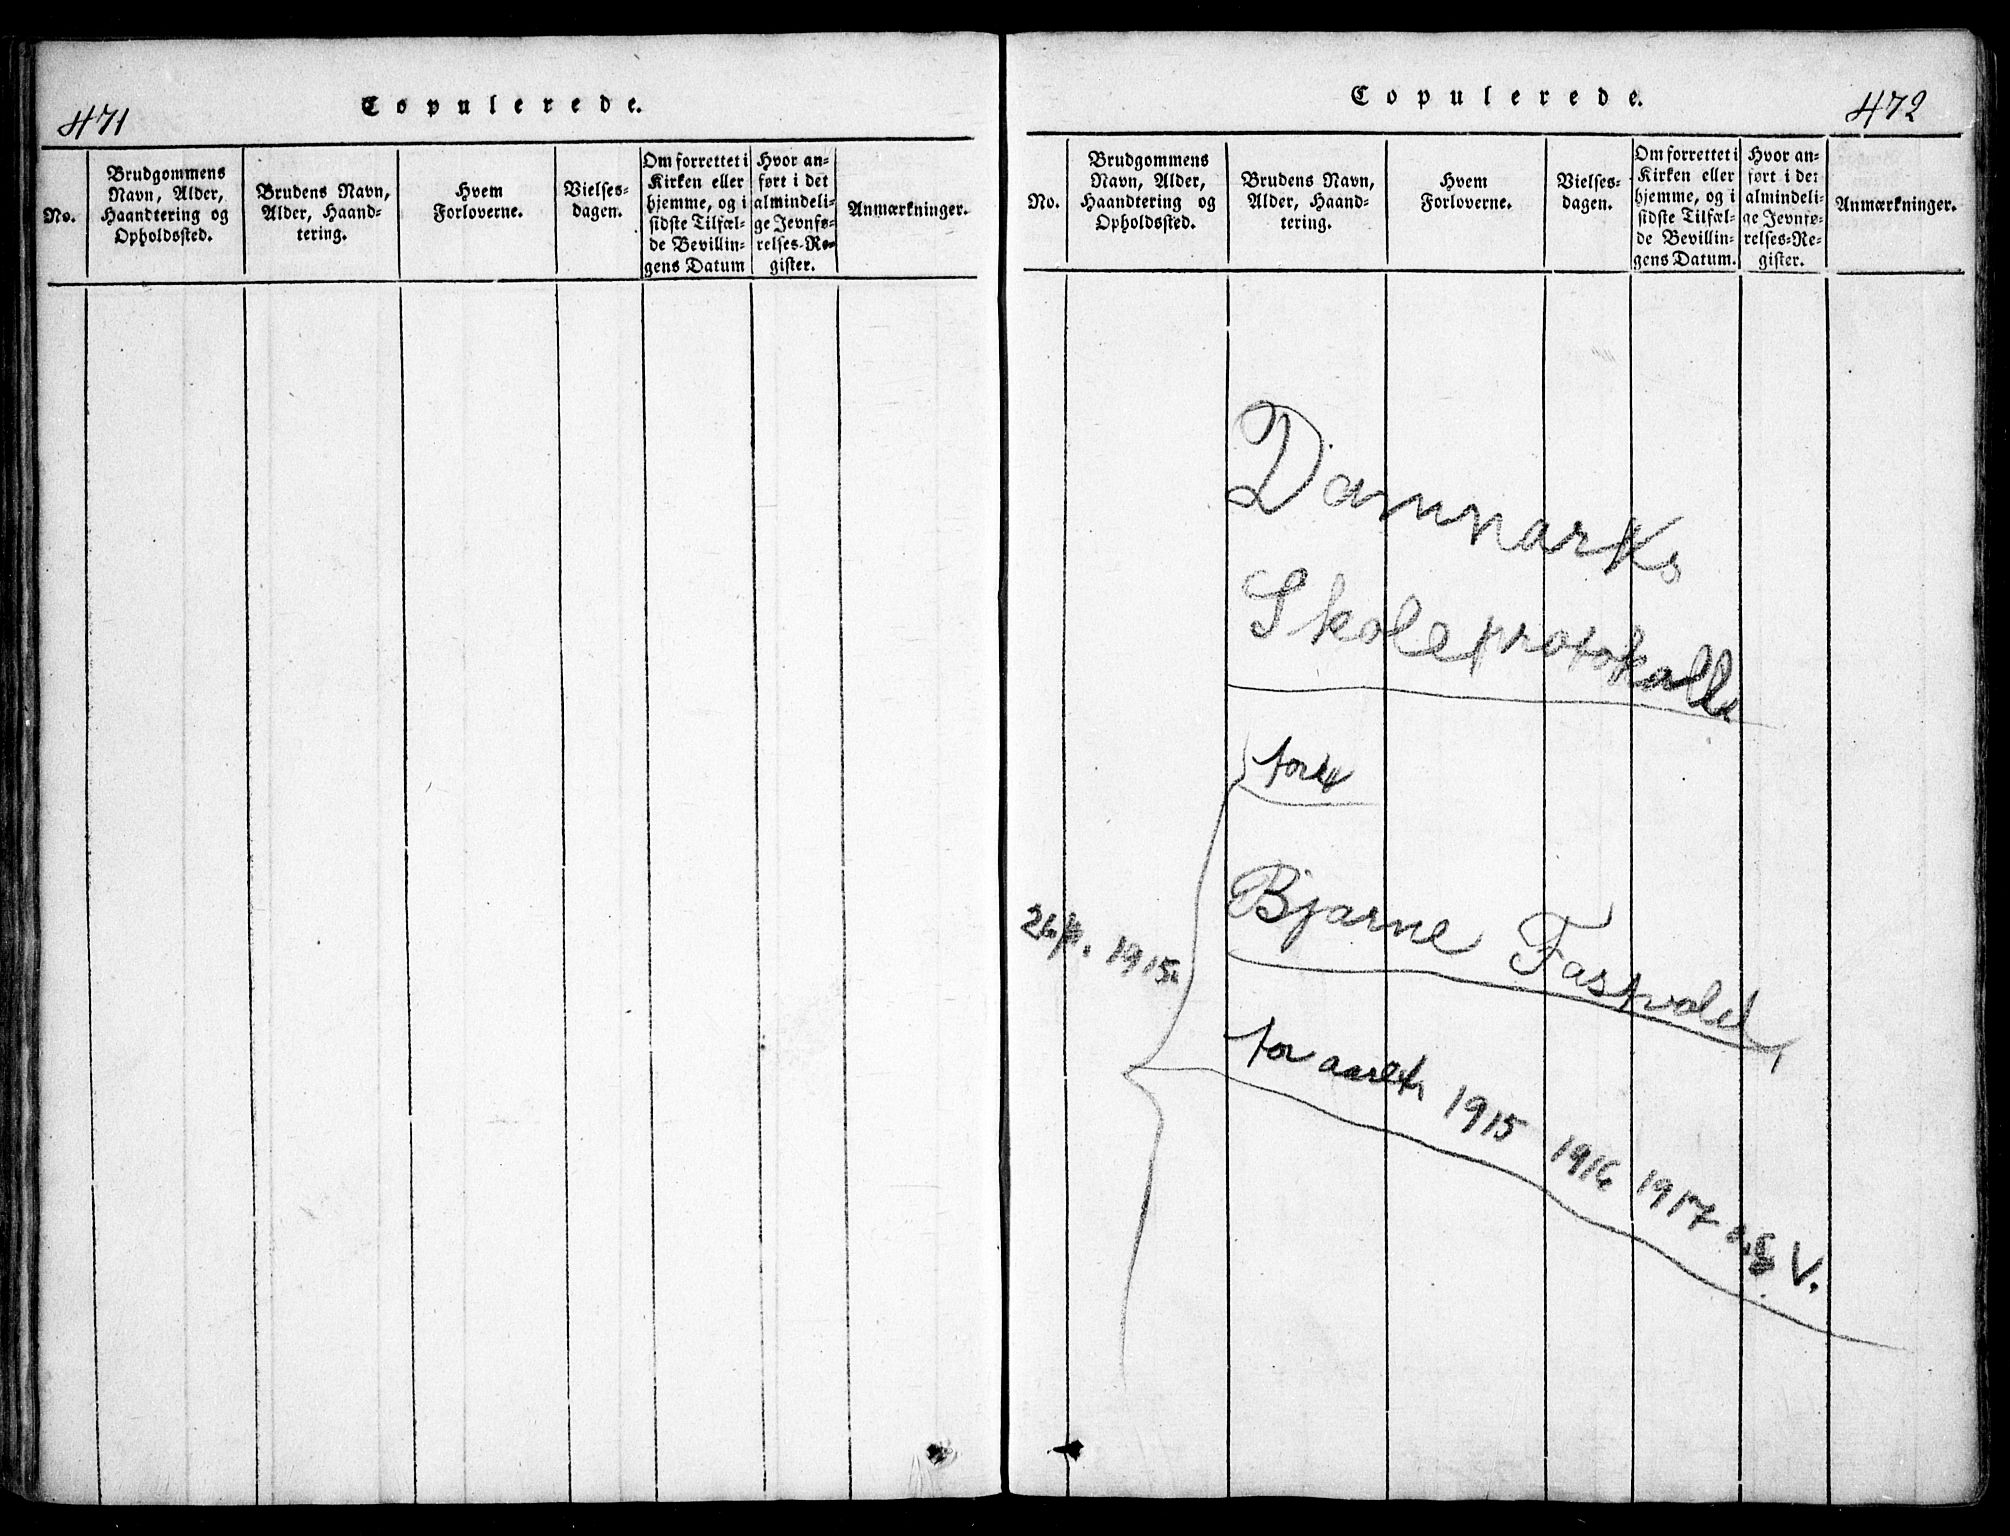 471
Copulerede.
No.
Brudgommens
Navn, Alder,
Haandtering og
Opholdssted.
Brudens Navn,
Alder, Haand-
tering.
Hvem
Forloverne.
Vielses-
dagen.
Om forrettet i
Kirken eller
hjemme, og i
sidste Tilfæl-
de Bevillin-
gens Datum
Hvor an-
ført i det
almindeli-
ge Jevnfø-
relses-Re-
gister.
Anmærkninger.
Copulerede.
472
No.
Brudgommens
Navn, Alder,
Haandtering og
Opholdssted.
Brudens Navn,
Alder, Haand-
tering.
Hvem
Forloverne.
Vielses-
dagen.
Om forrettet i
Kirken eller
hjemme, og i
sidste Tilfæl-
de Bevillin-
gens Datum.
Hvor an-
ført i det
almindeli-
ge Jevnfø-
relses-Re-
gister.
Anmærkninger.
Danmarks
Skoleprotokoll
for
1915.
Bjarne
for aaret 1915 1916 1917 V.